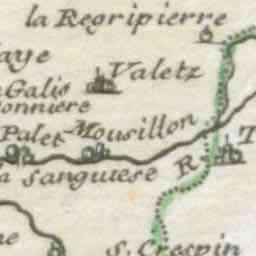 la Regripierre
aye
Valetz
Galis
onniere
Palet Mousillon
T
R
a sanguese
S. Crespin
ne